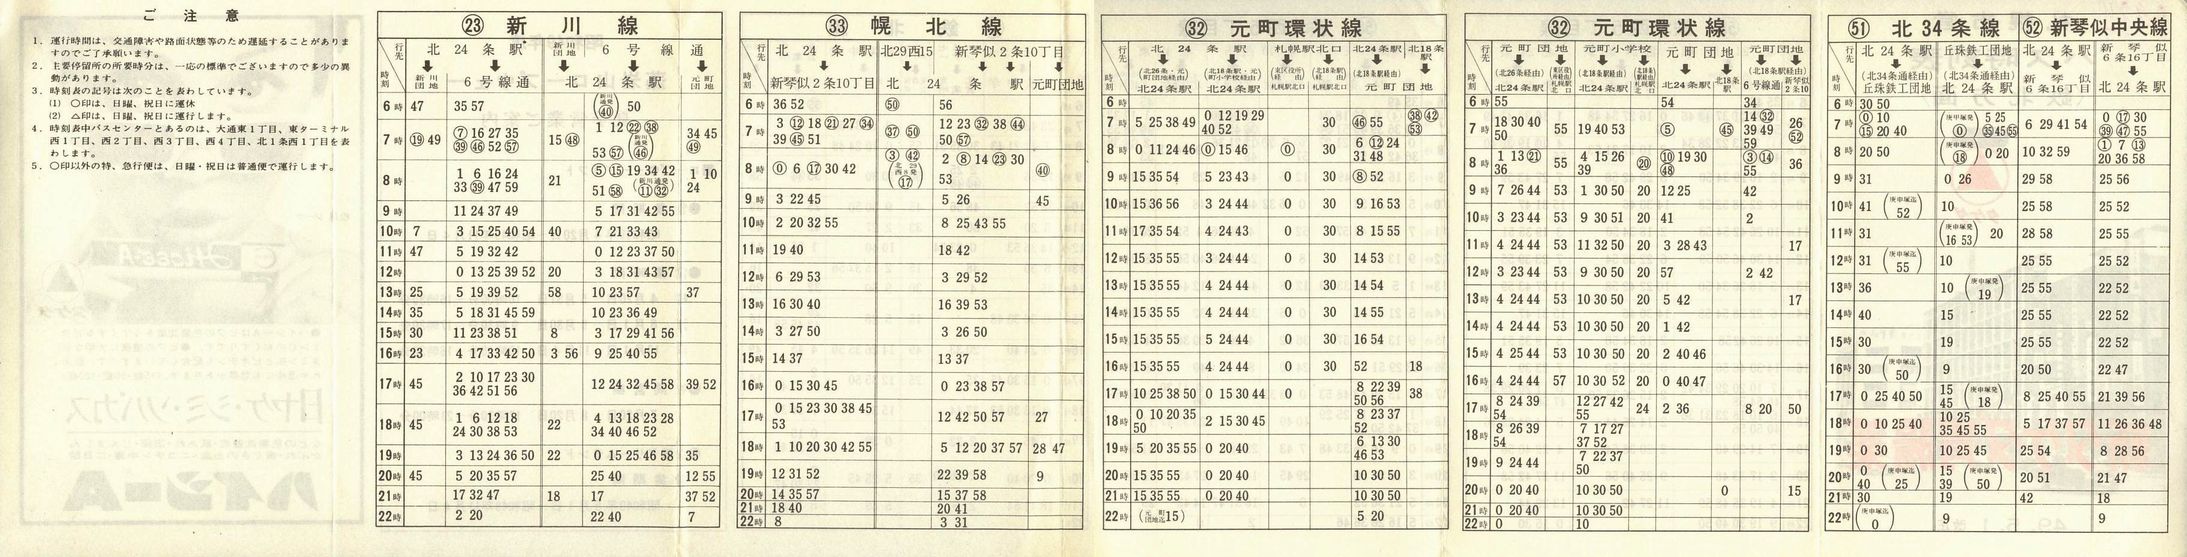 ご注意
1．運行時間は、交通障害や路面状態等のため遅延することがありま
すのでご了承願います。
2．主要停留所の所要時分は、一応の標準でございますので多少の異
動があります。
3．時刻表の記号は次のことを表わしています。
(1) 〇印は、日曜、祝日に運休
(2) △印は、日曜、祝日に運行します。
4．時刻表中バスセンターとあるのは、大通東1丁目、東ターミナル
西1丁目、西2丁目、西3丁目、西4丁目、北1条西1丁目を表
わします。
5．〇印以外の特、急行便は、日曜・祝日は普通便で運行します。
㉓ 新川線
行先 時刻
北24条駅 新川団地 6号線通
新川団地 6号線通 北24条駅 元町団地
6時 47 35 57 (新川通発 ㊵) 50
7時 ⑲ 49 ⑦ 16 27 35 15 ㊽ 1 12 ㉒ ㊳ 34 45
㊴ ㊻ 52 57 53 57 (新川通発 ㊻) ㊾
8時 1 6 16 24 21 ⑤ ⑮ 19 34 42 1 10
33 ㊴ 47 59 51 58 (新川通発 ⑪ ㉜) 24
9時 11 24 37 49 5 17 31 42 55
10時 7 3 15 25 40 54 40 7 21 33 43
11時 47 5 19 32 42 0 12 23 37 50
12時 0 13 25 39 52 20 3 18 31 43 57
13時 25 5 19 39 52 58 10 23 57 37
14時 35 5 18 31 45 59 10 23 36 49
15時 30 11 23 38 51 8 3 17 29 41 56
16時 23 4 17 33 42 50 3 56 9 25 40 55
17時 45 2 10 17 23 30 12 24 32 45 58 39 52
36 42 51 56
18時 45 1 6 12 18 22 4 13 18 23 28
24 30 38 53 34 40 46 52
19時 3 13 24 36 50 22 0 15 25 46 58 35
20時 45 5 20 35 57 25 40 12 55
21時 17 32 47 18 17 37 52
22時 2 20 22 40 7
㉝ 幌北線
行先 時刻
北24条駅 北29西15 新琴似2条10丁目
新琴似2条10丁目 北24条駅 元町団地
6時 36 52 ㊿ 56
7時 3 ⑫ 18 ㉑ 27 ㉞ ㊲ ㊿ 12 23 ㉜ 38 ㊹
39 ㊺ 51 50 57
8時 ⓪ 6 ⑰ 30 42 ③ ㊷ 2 ⑧ 14 ㉓ 30 ㊵
(⑰) 53
9時 3 22 45 5 26 45
10時 2 20 32 55 8 25 43 55
11時 19 40 18 42
12時 6 29 53 3 29 52
13時 16 30 40 16 39 53
14時 3 27 50 3 26 50
15時 14 37 13 37
16時 0 15 30 45 0 23 38 57
17時 0 15 23 30 38 45 12 42 50 57 27
53
18時 1 10 20 30 42 55 5 12 20 37 57 28 47
19時 12 31 52 22 39 58 9
20時 14 35 57 15 37 58
21時 18 40 20 41
22時 8 3 31
㉜ 元町環状線
行先 時刻
北24条駅 札幌駅北口 北24条駅 北18条駅
(北26条・元町団地経由) 北24条駅 (北18条駅・元町小学校経由) 北24条駅 (東区役所経由) 札幌駅北口 (北18条駅経由) 札幌駅北口 (北18条駅経由) 元町団地
6時
7時 5 25 38 49 0 12 19 29 30 ㊻ 55 ㊳ ㊷
40 52 53
8時 0 11 24 46 ⓪ 15 46 ⓪ 30 6 ⑫ 24
31 48
9時 15 35 54 5 23 43 0 30 ⑧ 52
10時 15 36 56 3 24 44 0 30 9 16 53
11時 17 35 54 4 24 43 0 30 8 15 55
12時 15 35 55 3 24 44 0 30 14 53
13時 15 35 55 4 24 44 0 30 14 54
14時 15 35 55 4 24 44 0 30 14 55
15時 15 35 55 5 24 44 0 30 16 54
16時 15 35 55 4 24 44 0 30 52 18
17時 10 25 38 50 0 15 30 44 0 8 22 39 38
50 56
18時 0 10 20 35 2 15 30 45 8 23 37
50 52
19時 5 20 35 55 0 20 40 6 13 30
46 53
20時 15 35 55 0 20 40 10 30 50
21時 15 35 55 0 20 40 10 30 50
22時 (元町団地迄 15) 5 20
㉜ 元町環状線
行先 時刻
元町団地 元町小学校 元町団地 元町団地
(北26条経由) 北24条駅 (東区役所経由) 札幌駅北口 (北18条駅経由) 北24条駅 (北18条駅経由) 札幌駅北口 北24条駅 北18条駅 (北18条駅経由) 6号線通 新琴似2条10
6時 55 54 34
7時 18 30 40 55 19 40 53 ⑤ ㊺ 14 ㉜ 26
50 39 47 59 52
8時 1 13 ㉑ 55 4 15 26 ⑳ ⑩ 19 30 ③ ⑭ 36
36 39 ㊽ 55
9時 7 26 44 53 1 30 50 20 12 25 42
10時 3 23 44 53 9 30 51 20 41 2
11時 4 24 44 53 11 32 50 20 3 28 43 17
12時 3 23 44 53 9 30 50 20 57 2 42
13時 4 24 44 53 10 30 50 20 5 42 17
14時 4 24 44 53 10 30 50 20 1 42
15時 4 25 44 53 10 30 50 20 2 40 46
16時 4 24 44 57 10 30 52 20 0 40 47
17時 8 24 39 12 27 42 24 2 36 8 20 50
54 55
18時 8 26 39 7 17 27
54 37 52
19時 9 24 44 7 22 37
50
20時 0 20 40 10 30 50 0 15
21時 0 20 40 10 30 50
22時 0 10
�51 北34条線 �52 新琴似中央線
行先 時刻
北24条駅 丘珠鉄工団地 北24条駅 新琴似6条16丁目
(北34条通経由) 丘珠鉄工団地 (北34条通経由) 北24条駅 新琴似6条16丁目 北24条駅
6時 30 50
7時 ⓪ 10 (庚申塚発 ⓪) 5 25 6 29 41 54 0 ⑰ 30
⑮ 20 40 ㉟ ㊺ 55 ㊴ ㊼ 55
8時 20 50 (庚申塚発 ⑱) 0 20 10 32 59 ① 7 ⑬
20 36 58
9時 31 0 26 29 58 25 56
10時 41 (庚申塚迄 52) 10 25 58 25 52
11時 31 (庚申塚発 16 53) 20 28 58 25 55
12時 31 (庚申塚迄 55) 10 25 55 25 52
13時 36 10 (庚申塚発 19) 25 55 22 52
14時 40 15 25 55 22 52
15時 30 19 25 55 22 52
16時 30 (庚申塚迄 50) 9 20 50 22 47
17時 0 25 40 50 15 45 (庚申塚発 18) 8 25 40 55 21 39 56
18時 0 10 25 40 10 25 5 17 37 57 11 26 36 48
35 45 55
19時 0 30 10 25 45 25 54 8 28 56
20時 0 40 (庚申塚迄 25) 15 39 (庚申塚発 50) 20 51 21 47
21時 30 19 42 18
22時 (庚申塚迄 0) 9 9